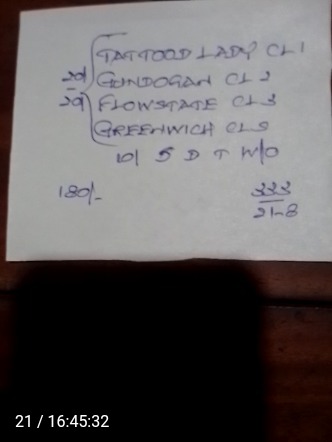 TATTOOD LADY CL 1
GUNDOGAN CL 2
20/
20/
FLOWSTATE CL 3
GREENWICH CL 9
10/ 5 D T W/O
180/-
333
21-8
21 / 16:45:32